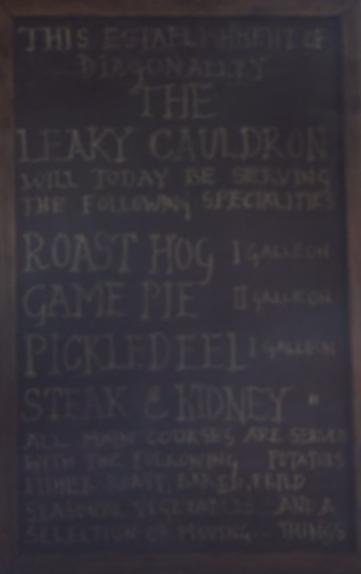 THIS ESTABLISHMENT OF
DIAGONALLEY
THE
LEAKY CAULDRON
WILL TODAY BE SERVING
THE FOLLOWING SPECIALITIES
ROAST HOG I GALLEON
GAME PIE II GALLEON
PICKLED EEL I GALLEON
STEAK & KIDNEY "
ALL MAIN COURSES ARE SERVED
WITH THE FOLLOWING POTATOES
EITHER ROAST, BAKED, FRIED
SEASONAL VEGETABLES AND A
SELECTION OF MOVING... THINGS